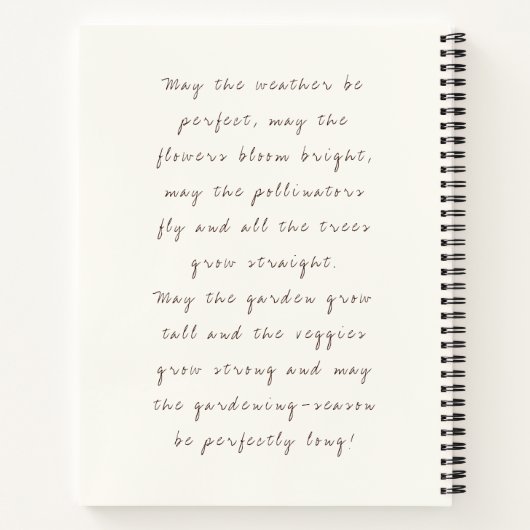 May the weather be
perfect, may the
flowers bloom bright,
may the pollinators
fly and all the trees
grow straight.
May the garden grow
tall and the veggies
grow strong and may
the gardening-season
be perfectly long!